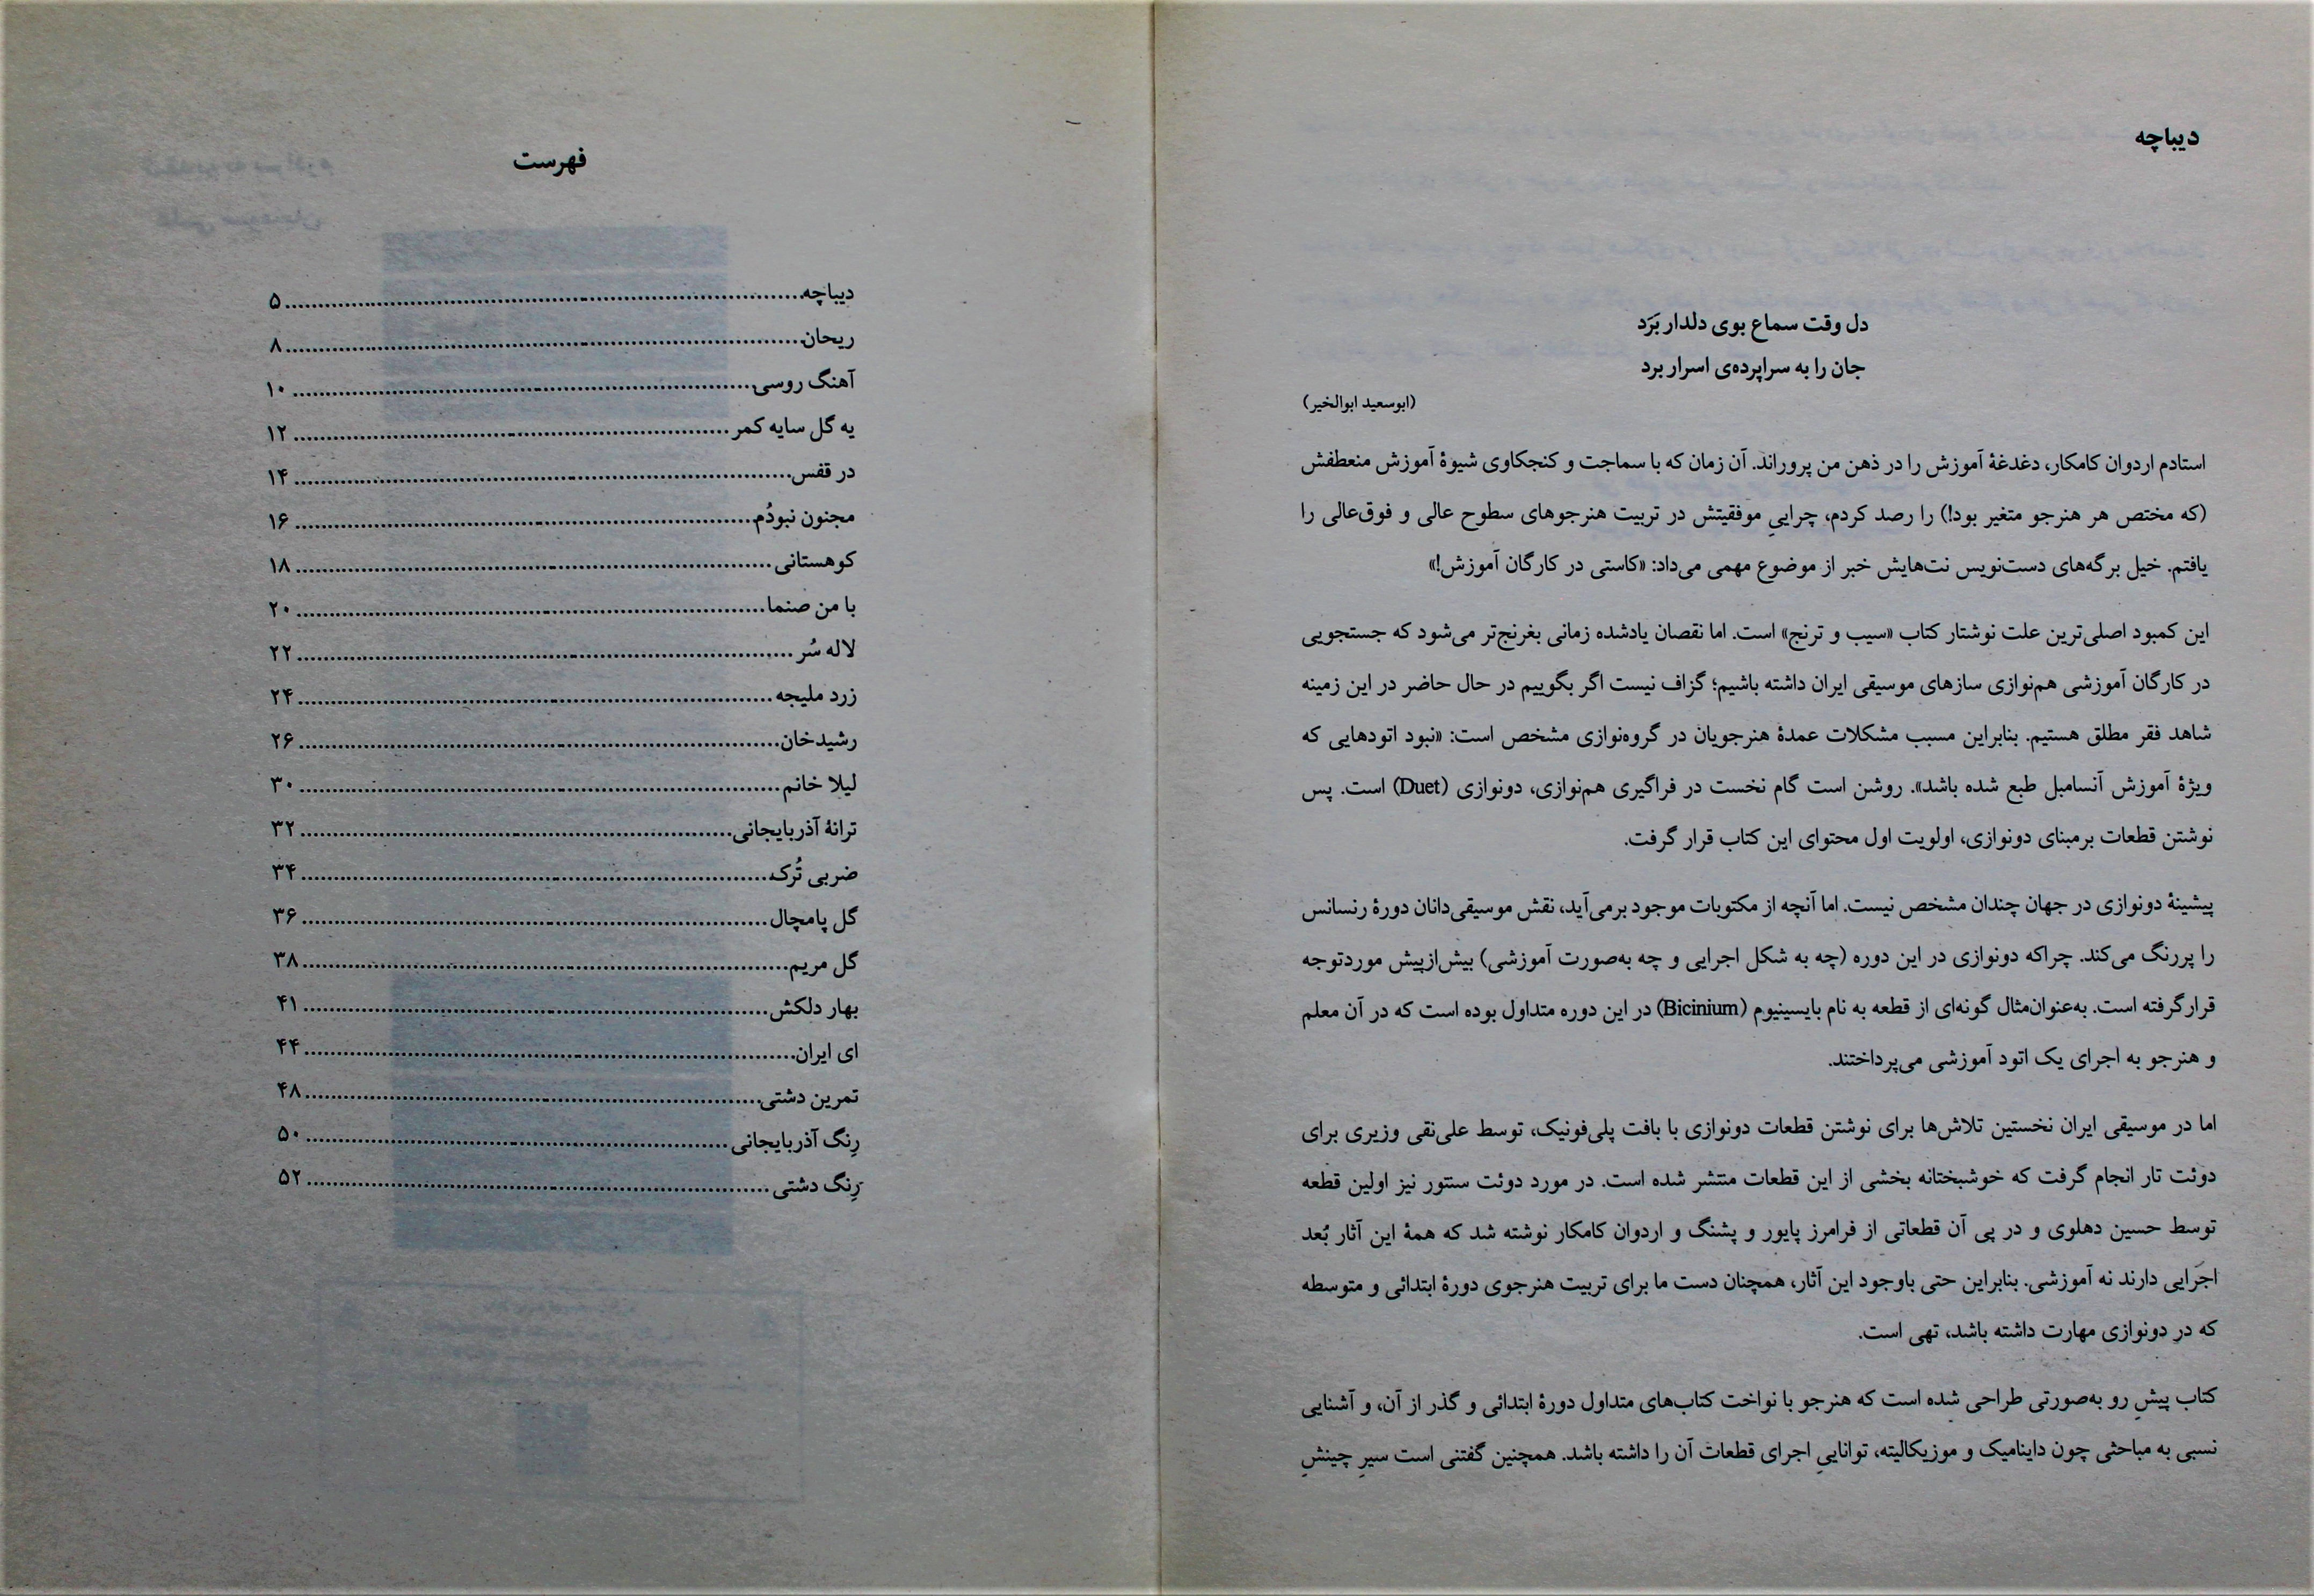 دیباچه
دل وقت سماع بوی دلدار بَرَد
جان را به سراپرده‌ی اسرار برد
(ابوسعید ابوالخیر)
استادم اردوان کامکار، دغدغۀ آموزش را در ذهن من پروراند. آن زمان که با سماجت و کنجکاوی شیوۀ آموزش منعطفش
(که مختص هر هنرجو متغیر بود!) را رصد کردم، چراییِ موفقیتش در تربیت هنرجوهای سطوح عالی و فوق‌عالی را
یافتم. خیل برگه‌های دست‌نویس نت‌هایش خبر از موضوع مهمی می‌داد: «کاستی در کارگان آموزش!»
این کمبود اصلی‌ترین علت نوشتار کتاب «سیب و ترنج» است. اما نقصان یادشده زمانی بغرنج‌تر می‌شود که جستجویی
در کارگان آموزشی هم‌نوازی سازهای موسیقی ایران داشته باشیم؛ گزاف نیست اگر بگوییم در حال حاضر در این زمینه
شاهد فقر مطلق هستیم. بنابراین مسبب مشکلات عمدۀ هنرجویان در گروه‌نوازی مشخص است: «نبود اتودهایی که
ویژۀ آموزش آنسامبل طبع شده باشد». روشن است گام نخست در فراگیری هم‌نوازی، دونوازی (Duet) است. پس
نوشتن قطعات برمبنای دونوازی، اولویت اول محتوای این کتاب قرار گرفت.
پیشینۀ دونوازی در جهان چندان مشخص نیست. اما آنچه از مکتوبات موجود برمی‌آید، نقش موسیقی‌دانان دورۀ رنسانس
را پررنگ می‌کند. چراکه دونوازی در این دوره (چه به شکل اجرایی و چه به‌صورت آموزشی) بیش‌ازپیش موردتوجه
قرارگرفته است. به‌عنوان‌مثال گونه‌ای از قطعه به نام بایسینیوم (Bicinium) در این دوره متداول بوده است که در آن معلم
و هنرجو به اجرای یک اتود آموزشی می‌پرداختند.
اما در موسیقی ایران نخستین تلاش‌ها برای نوشتن قطعات دونوازی با بافت پلی‌فونیک، توسط علی‌نقی وزیری برای
دوئت تار انجام گرفت که خوشبختانه بخشی از این قطعات منتشر شده است. در مورد دوئت سنتور نیز اولین قطعه
توسط حسین دهلوی و در پی آن قطعاتی از فرامرز پایور و پشنگ و اردوان کامکار نوشته شد که همۀ این آثار بُعد
اجرایی دارند نه آموزشی. بنابراین حتی باوجود این آثار، همچنان دست ما برای تربیت هنرجوی دورۀ ابتدائی و متوسطه
که در دونوازی مهارت داشته باشد، تهی است.
کتاب پیشِ رو به‌صورتی طراحی شده است که هنرجو با نواخت کتاب‌های متداول دورۀ ابتدائی و گذر از آن، و آشنایی
نسبی به مباحثی چون داینامیک و موزیکالیته، تواناییِ اجرای قطعات آن را داشته باشد. همچنین گفتنی است سیرِ چینشِ
فهرست
دیباچه ........ ۵
ریحان ........ ۸
آهنگ روسی ........ ۱۰
یه گل سایه کمر ........ ۱۲
در قفس ........ ۱۴
مجنون نبودُم ........ ۱۶
کوهستانی ........ ۱۸
با من صنما ........ ۲۰
لاله سُر ........ ۲۲
زرد ملیجه ........ ۲۴
رشیدخان ........ ۲۶
لیلا خانم ........ ۳۰
ترانۀ آذربایجانی ........ ۳۲
ضربی تُرک ........ ۳۴
گل پامچال ........ ۳۶
گل مریم ........ ۳۸
بهار دلکش ........ ۴۱
ای ایران ........ ۴۴
تمرین دشتی ........ ۴۸
رِنگ آذربایجانی ........ ۵۰
رِنگ دشتی ........ ۵۲